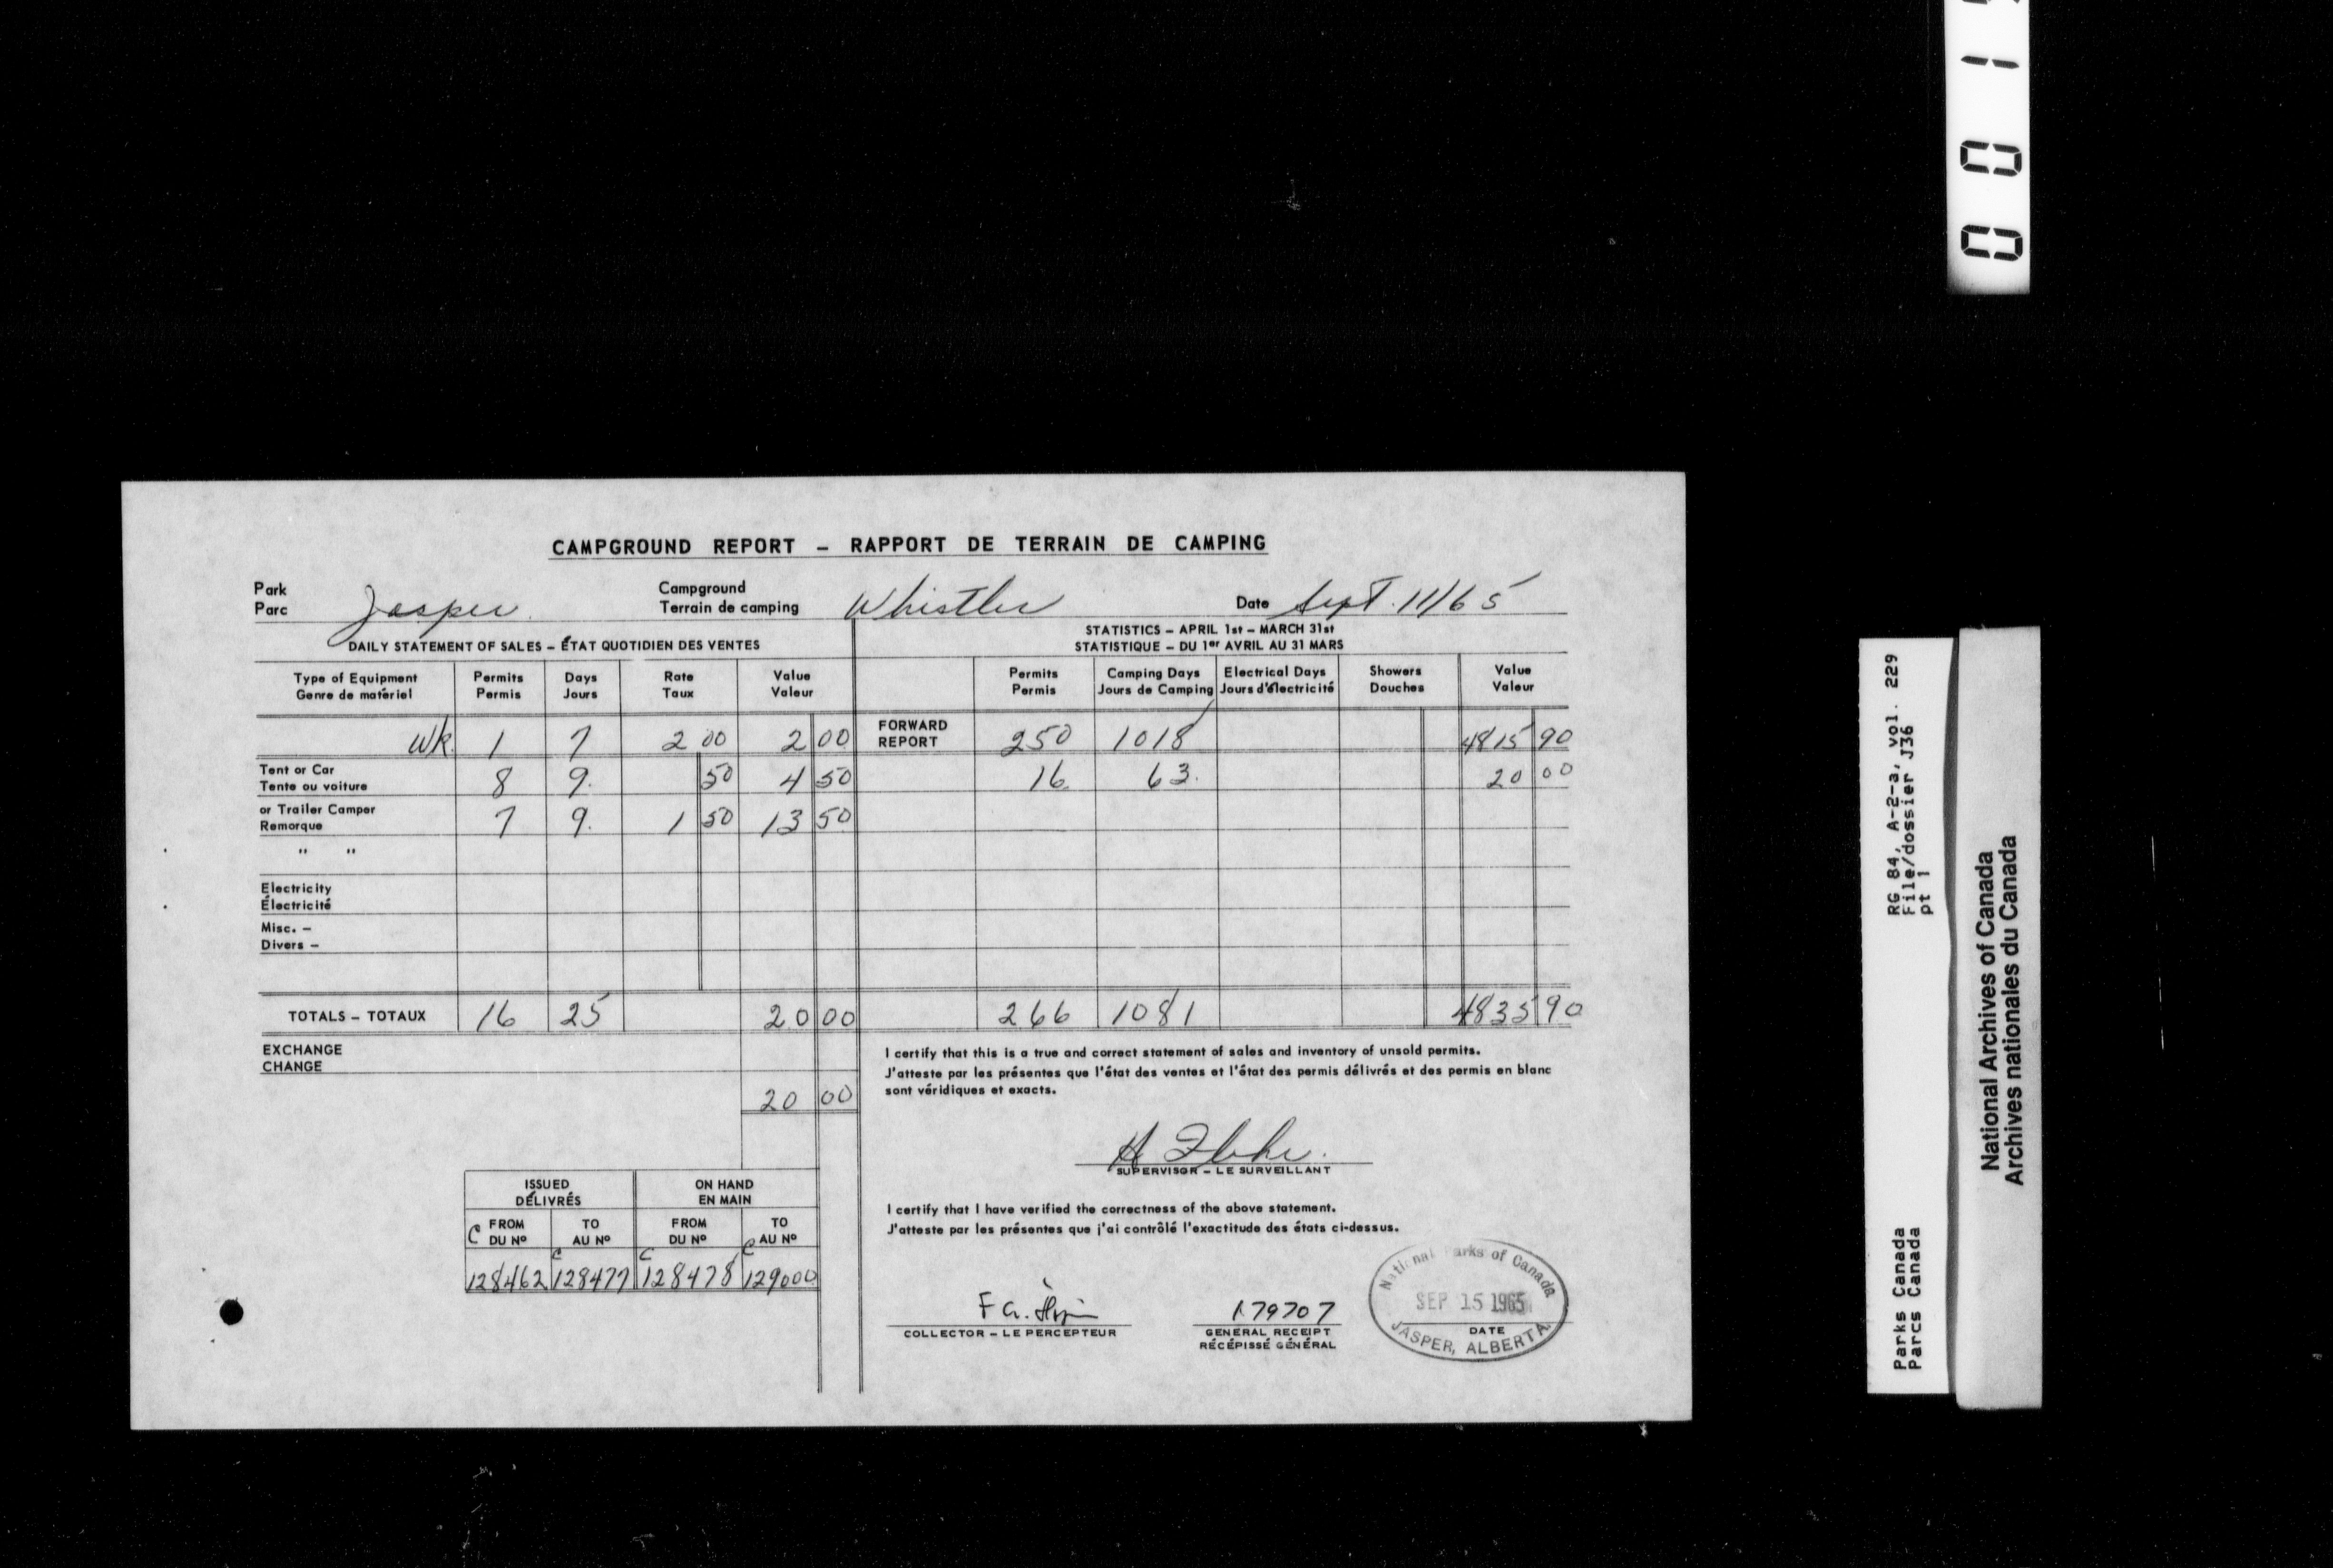 0 0 1
CAMPGROUND REPORT – RAPPORT DE TERRAIN DE CAMPING
Park
Parc
Jasper
Campground
Terrain de camping
Whistler
Date Sept. 11/65
DAILY STATEMENT OF SALES – ÉTAT QUOTIDIEN DES VENTES
STATISTICS – APRIL 1st – MARCH 31st
STATISTIQUE – DU 1er AVRIL AU 31 MARS
Type of Equipment Permits Days Rate Value
Genre de matériel Permis Jours Taux Valeur
Permits Camping Days Electrical Days Showers Value
Permis Jours de Camping Jours d'électricité Douches Valeur
Wk. 1 7 2 00 2 00
FORWARD
REPORT
250 1018 4815 90
Tent or Car
Tente ou voiture
8 9. 50 4 50
16. 63. 20 00
or Trailer Camper
Remorque
7 9. 1 50 13 50
" "
Electricity
Électricité
Misc. –
Divers –
TOTALS – TOTAUX 16 25 20 00
266 1081 4835 90
EXCHANGE
CHANGE
20 00
I certify that this is a true and correct statement of sales and inventory of unsold permits.
J'atteste par les présentes que l'état des ventes et l'état des permis délivrés et des permis en blanc
sont véridiques et exacts.
SUPERVISOR – LE SURVEILLANT
ISSUED ON HAND
DÉLIVRÉS EN MAIN
FROM TO FROM TO
C DU Nº AU Nº DU Nº AU Nº
C C C
128462 128477 128478 129000
I certify that I have verified the correctness of the above statement.
J'atteste par les présentes que j'ai contrôlé l'exactitude des états ci-dessus.
F G.
COLLECTOR – LE PERCEPTEUR
179707
GENERAL RECEIPT
RÉCÉPISSÉ GÉNÉRAL
National Parks of Canada
SEP 15 1965
DATE
JASPER, ALBERTA.
RG 84, A-2-a, vol. 229
File/dossier J36
pt 1
Parks Canada
Parcs Canada
National Archives of Canada
Archives nationales du Canada